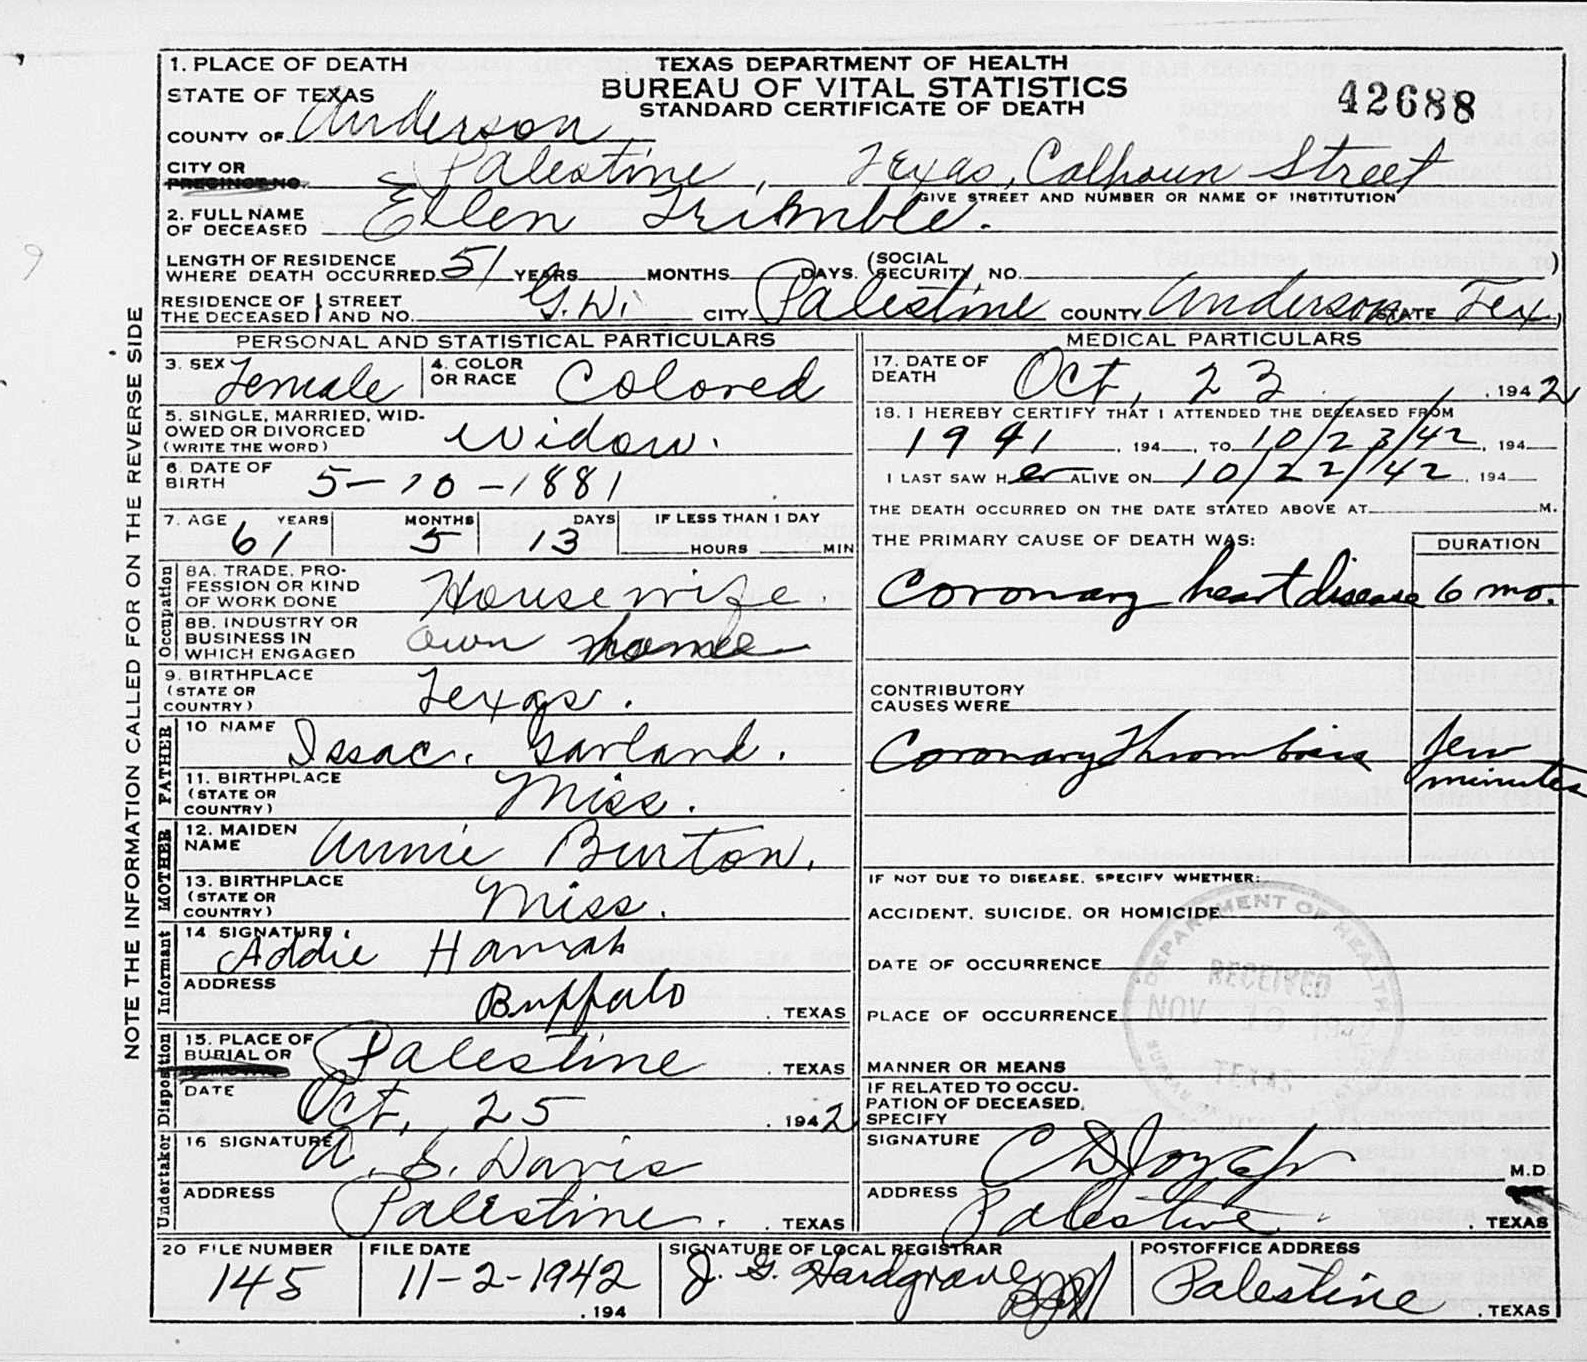 1. PLACE OF DEATH
STATE OF TEXAS
COUNTY OF Anderson
TEXAS DEPARTMENT OF HEALTH
BUREAU OF VITAL STATISTICS
STANDARD CERTIFICATE OF DEATH
42688
CITY OR PRECINCT NO. Palestine, Texas, Calhoun Street
GIVE STREET AND NUMBER OR NAME OF INSTITUTION
2. FULL NAME OF DECEASED Ellen Trimble.
LENGTH OF RESIDENCE WHERE DEATH OCCURRED 51 YEARS MONTHS DAYS. (SOCIAL SECURITY NO. )
RESIDENCE OF THE DECEASED STREET AND NO. G.W. CITY Palestine COUNTY Anderson STATE Tex
NOTE THE INFORMATION CALLED FOR ON THE REVERSE SIDE
PERSONAL AND STATISTICAL PARTICULARS
3. SEX Female 4. COLOR OR RACE Colored
5. SINGLE, MARRIED, WIDOWED OR DIVORCED (WRITE THE WORD) Widow.
6. DATE OF BIRTH 5-10-1881
7. AGE 61 YEARS 5 MONTHS 13 DAYS IF LESS THAN 1 DAY HOURS MIN
Occupation
8A. TRADE, PROFESSION OR KIND OF WORK DONE Housewife.
8B. INDUSTRY OR BUSINESS IN WHICH ENGAGED own home
9. BIRTHPLACE (STATE OR COUNTRY) Texas.
FATHER
10 NAME Issac. Garland.
11. BIRTHPLACE (STATE OR COUNTRY) Miss.
MOTHER
12. MAIDEN NAME Annie Burton.
13. BIRTHPLACE (STATE OR COUNTRY) Miss.
Informant
14 SIGNATURE Addie
ADDRESS Buffalo, TEXAS
Disposition
15. PLACE OF BURIAL OR Palestine, TEXAS
DATE Oct, 25, 1942
Undertaker
16 SIGNATURE A. S. Davis
ADDRESS Palestine, TEXAS
MEDICAL PARTICULARS
17. DATE OF DEATH Oct, 23, 1942
18. I HEREBY CERTIFY THAT I ATTENDED THE DECEASED FROM
1941, 194 , TO 10/23/42, 194
I LAST SAW Her ALIVE ON 10/22/42, 194
THE DEATH OCCURRED ON THE DATE STATED ABOVE AT M.
THE PRIMARY CAUSE OF DEATH WAS: DURATION
Coronary heart disease 6 mo.
CONTRIBUTORY CAUSES WERE
Coronary Thrombosis few minutes
IF NOT DUE TO DISEASE, SPECIFY WHETHER:
ACCIDENT, SUICIDE, OR HOMICIDE
DATE OF OCCURRENCE
PLACE OF OCCURRENCE
MANNER OR MEANS
IF RELATED TO OCCUPATION OF DECEASED, SPECIFY
DEPARTMENT OF HEALTH
RECEIVED
NOV
TEXAS
SIGNATURE M.D.
ADDRESS Palestine, TEXAS
20 FILE NUMBER 145
FILE DATE 11-2-1942, 194
SIGNATURE OF LOCAL REGISTRAR J. G. Hardgrave
POSTOFFICE ADDRESS Palestine, TEXAS